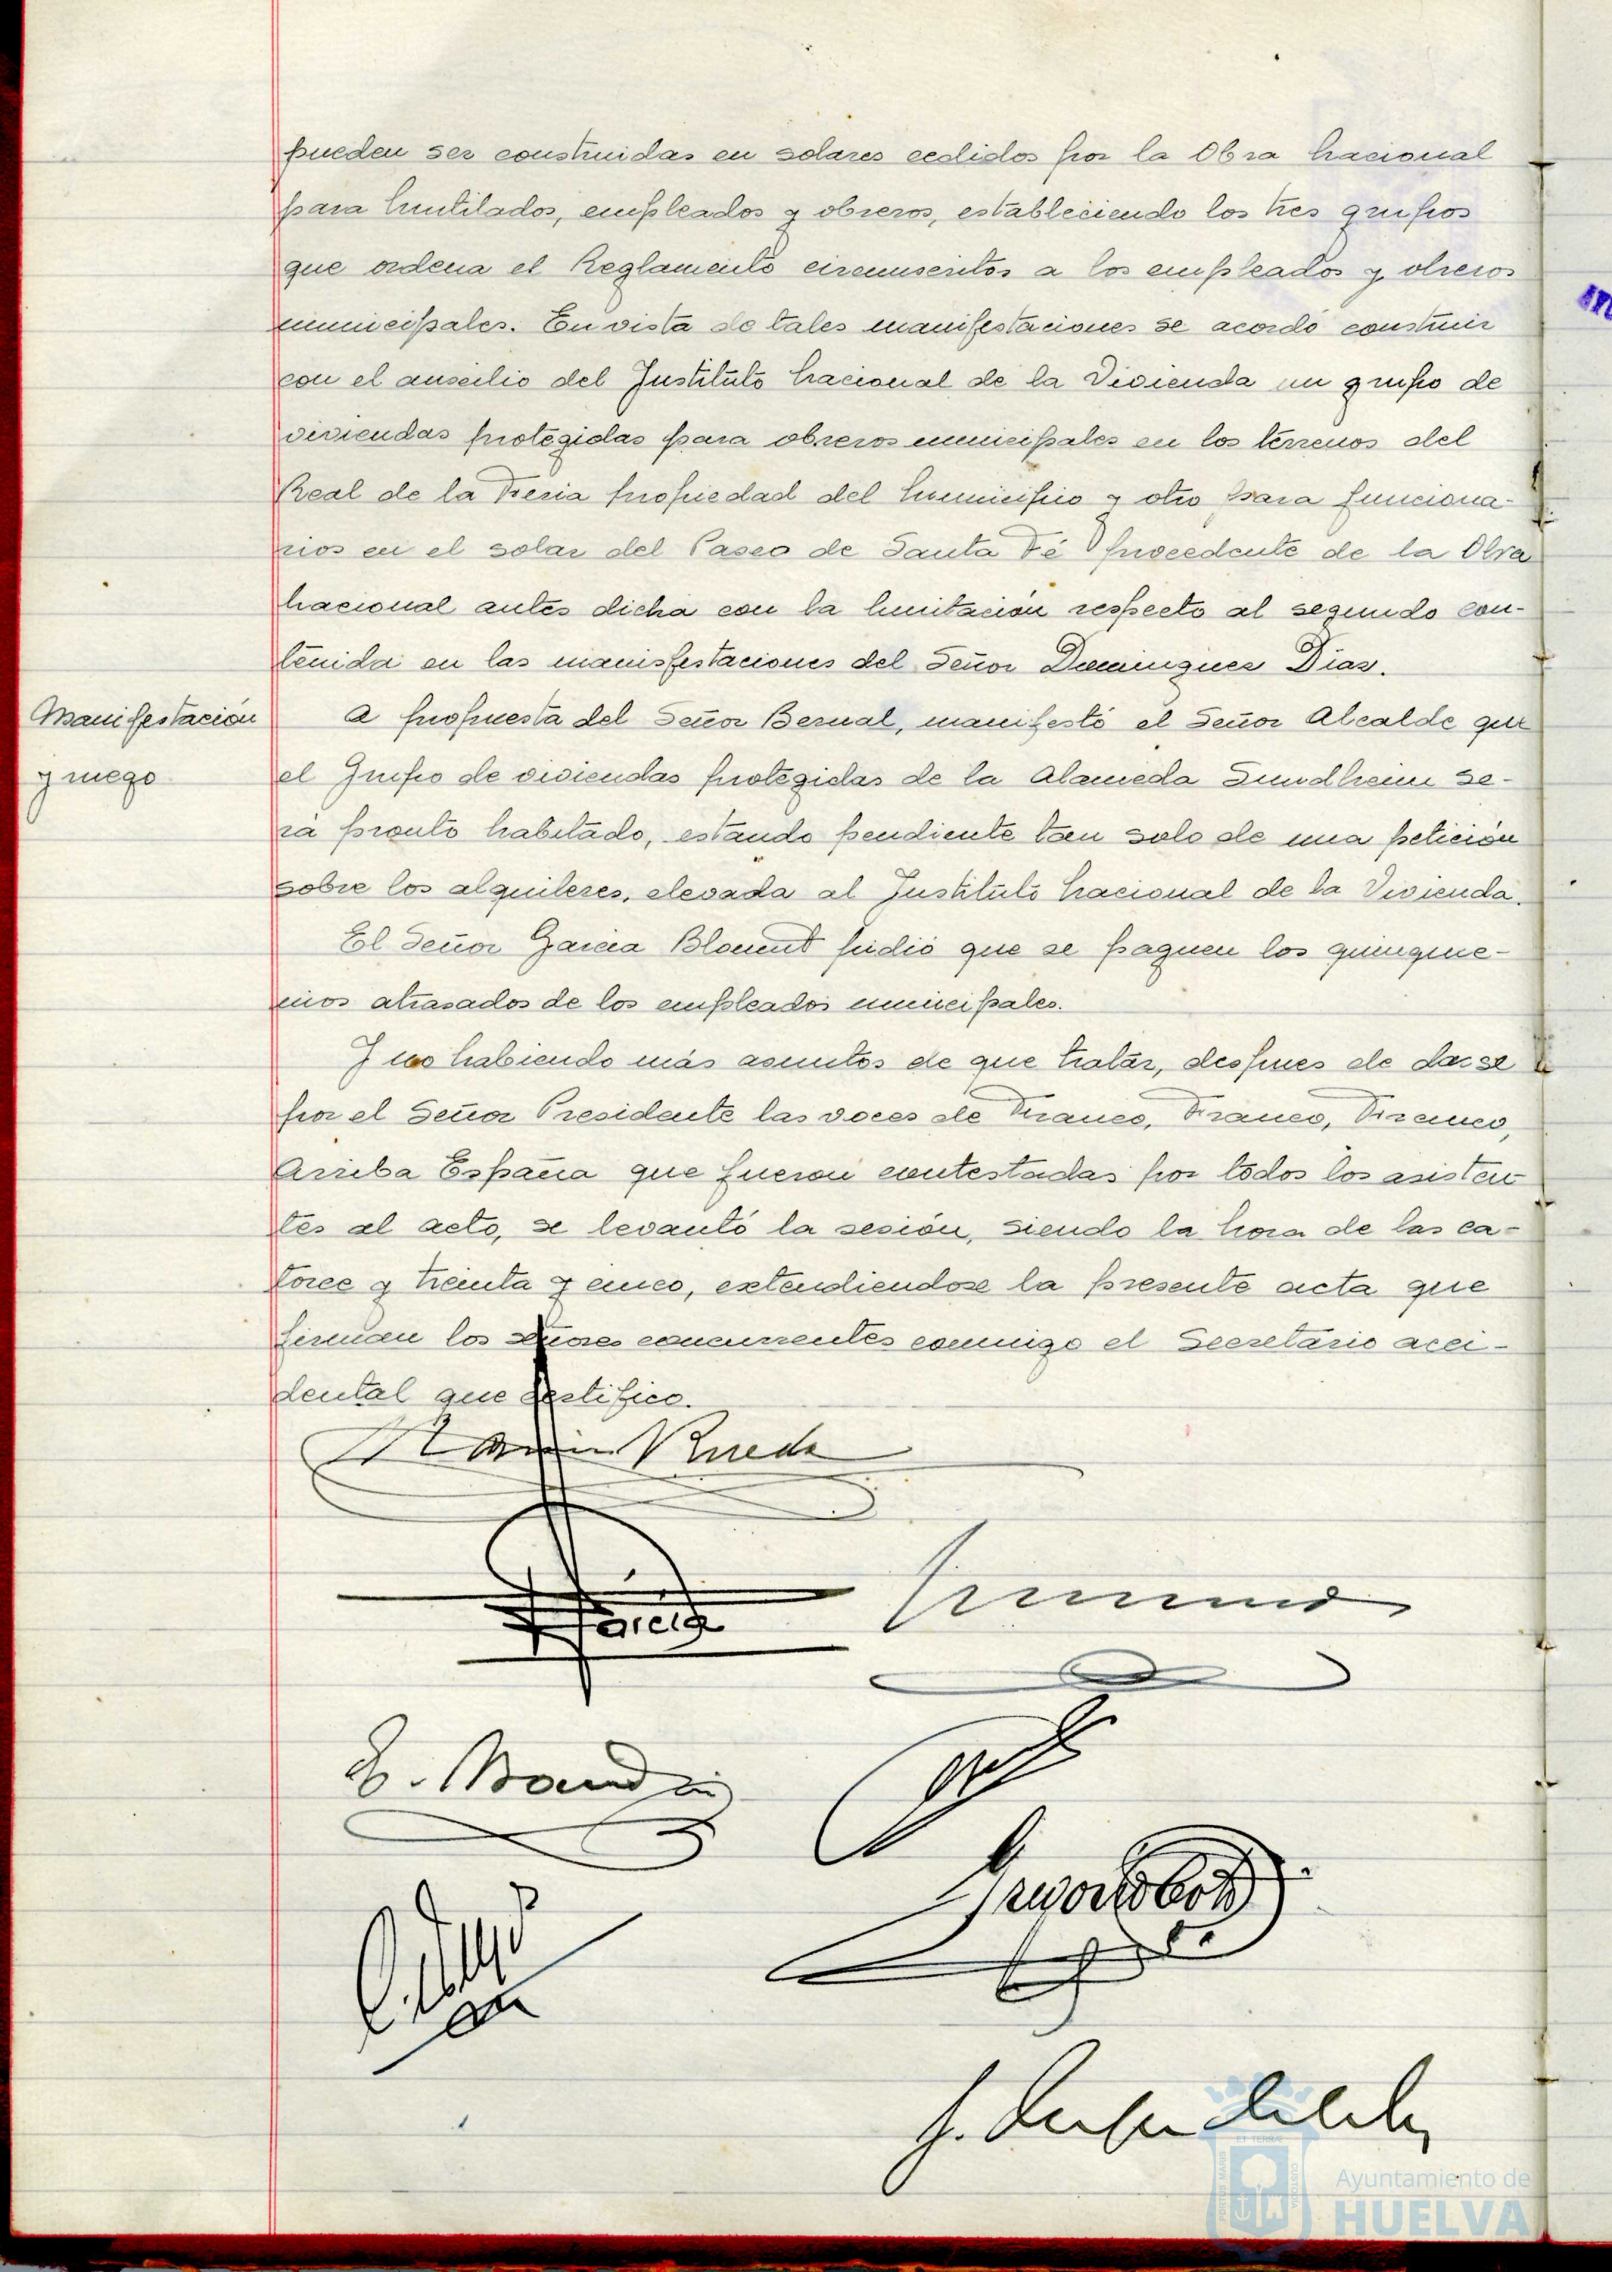 pueden ser construidas en solares cedidos por la Obra Nacional
para Mutilados, empleados y obreros, estableciendo los tres grupos
que ordena el Reglamento circunscritos a los empleados y obreros
municipales. En vista de tales manifestaciones se acordó construir
con el auxilio del Instituto Nacional de la Vivienda un grupo de
viviendas protegidas para obreros municipales en los terrenos del
Real de la Feria propiedad del Municipio y otro para funciona-
rios en el solar del Paseo de Santa Fé procedente de la Obra
Nacional antes dicha con la limitación respecto al segundo con-
tenida en las manisfestaciones del Señor Dominguez Diaz.
Manifestación
y ruego
A propuesta del Señor Bernal, manifestó el Señor Alcalde que
el Grupo de viviendas protegidas de la Alameda Sundheim se-
rá pronto habitado, estando pendiente tan solo de una petición
sobre los alquileres, elevada al Instituto Nacional de la Vivienda.
El Señor Garcia pidió que se paguen los quinque-
nios atrasados de los empleados municipales.
Y no habiendo más asuntos de que tratar, despues de darse
por el Señor Presidente las voces de Franco, Franco, Franco,
Arriba España que fueron contestadas por todos los asisten-
tes al acto, se levantó la sesión, siendo la hora de las ca-
torce y treinta y cinco, extendiendose la presente acta que
firman los señores concurrentes conmigo el Secretario acci-
dental que certifico.
Rueda
García
Ayuntamiento de
HUELVA